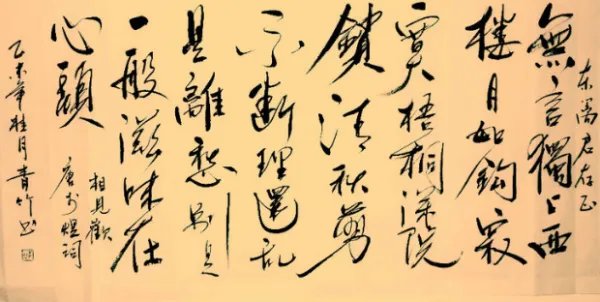 东君存正
無言獨上西
樓月如鈎寂
寞梧桐深院
鎖清秋剪
不斷理還乱
是離愁别是
一般滋味在
心頭
相見歡
唐李煜詞
乙未年桂月青竹书